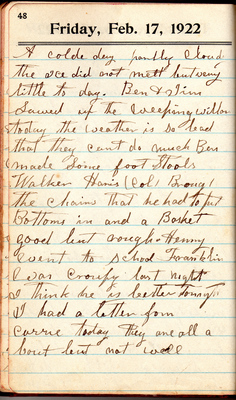 48
Friday, Feb. 17, 1922
A colde day partly Cloud
the ice did not melt but very
little to day. Ben & Jim
Sawed up the weeping willow
today the weather is so bad
that they can't do much Ben
made Some foot Stools
Walker Haris (Col) Broug
the chairs that he had to put
Bottoms in and a Basket
good but rough. Henny
went to school Franklin
was Croupy last night
I think he is better tonight
I had a letter from
carrie today They are all a
bout but not well